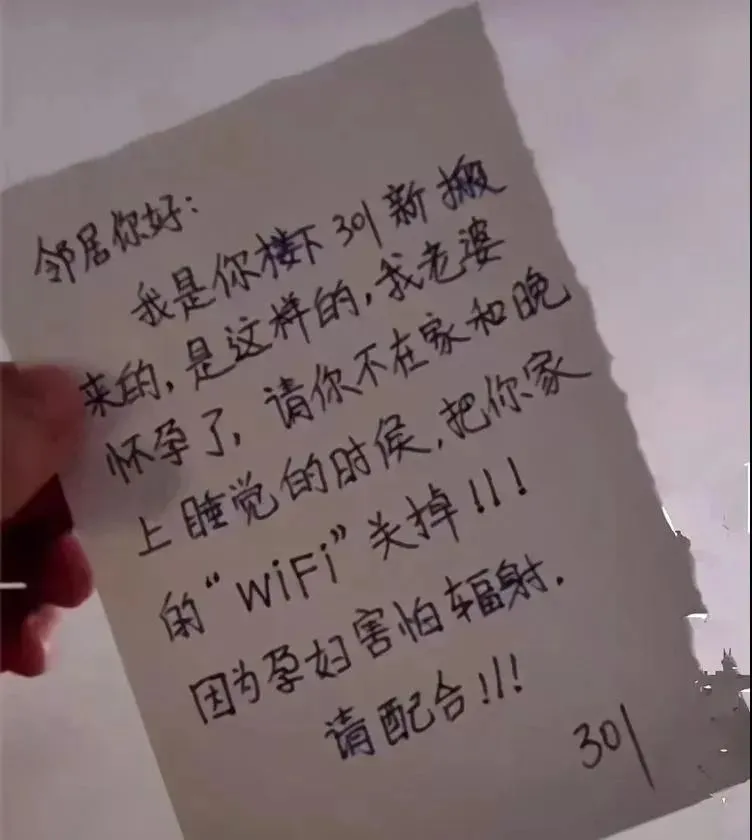 邻居你好：
我是你楼下301新搬
来的，是这样的，我老婆
怀孕了，请你不在家和晚
上睡觉的时侯，把你家
的“WiFi”关掉!!!
因为孕妇害怕辐射.
请配合!!!
301